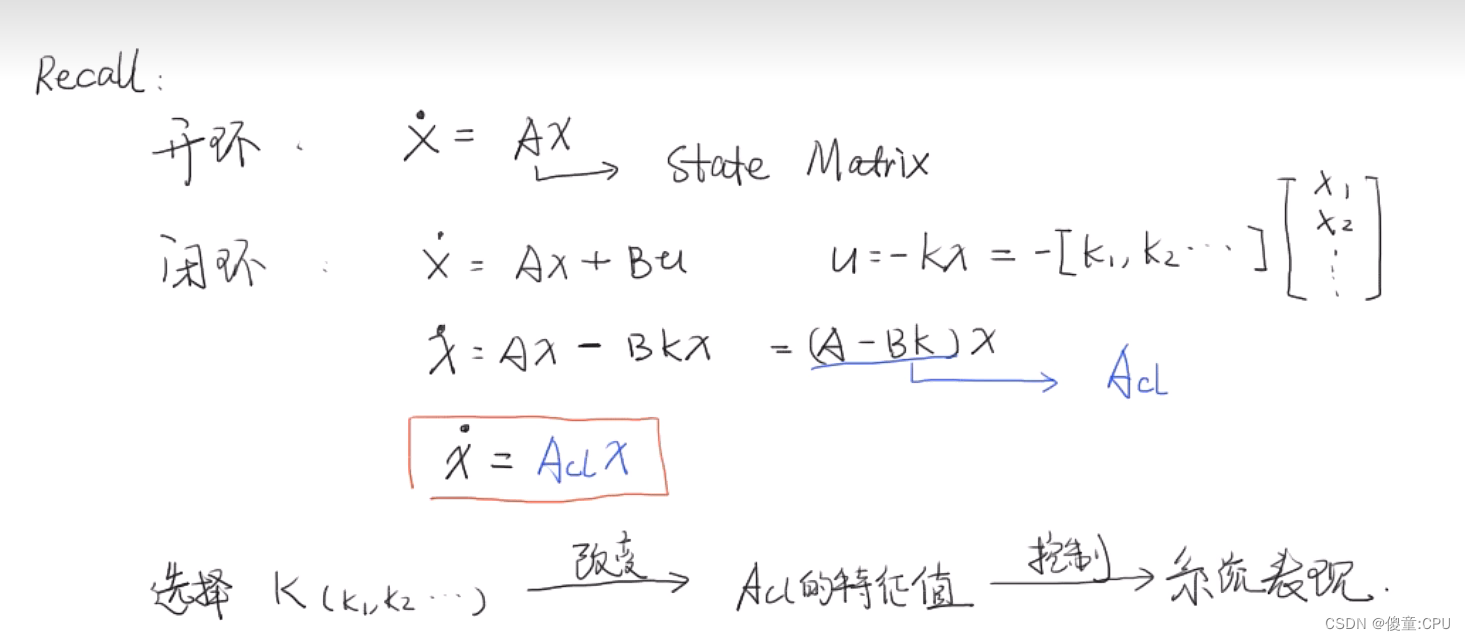 Recall:
开环: ẋ = Ax → State Matrix
闭环: ẋ = Ax + Bu u = -kx = -[k₁, k₂ ⋯] [x₁ x₂ ⋮]
ẋ = Ax - Bkx = (A - Bk)x → Acl
ẋ = Acl x
选择 K(k₁,k₂ ⋯) 改变→ Acl的特征值 控制→ 系统表现.
CSDN @傻童:CPU